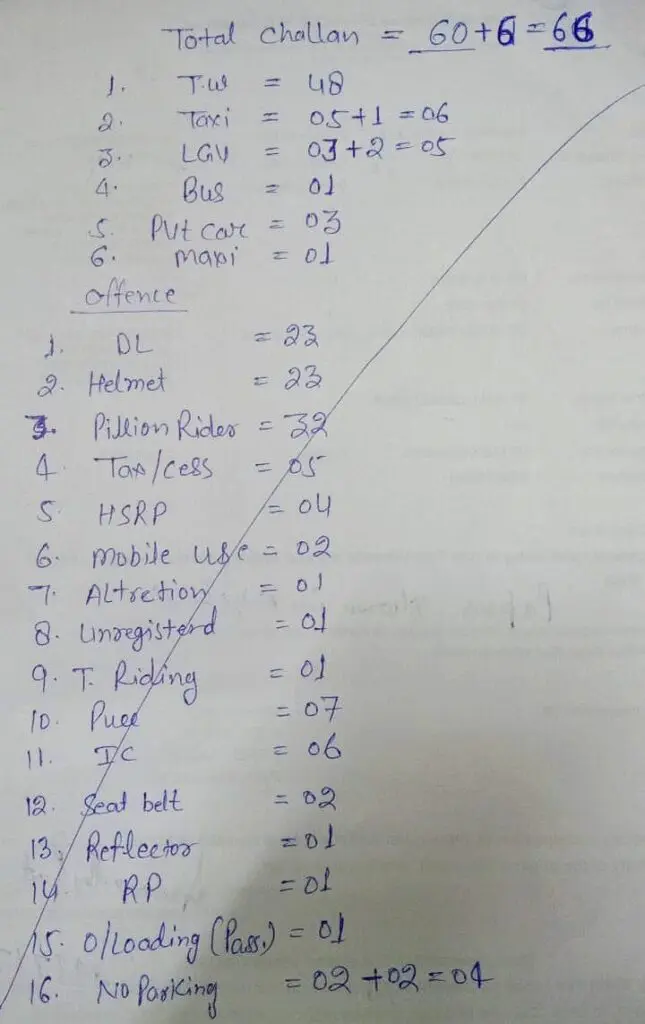 Total Challan = 60+6=66
1. T.W = 48
2. Taxi = 05+1=06
3. LGV = 03+2=05
4. Bus = 01
5. Pvt car = 03
6. maxi = 01
Offence
1. DL = 23
2. Helmet = 23
3. Pillion Rider = 32
4. Tax/cess = 05
5 HSRP = 04
6. mobile use = 02
7. Altretion = 01
8. Unregisterd = 01
9. T. Riding = 01
10. Pucc = 07
11. IC = 06
12. Seat belt = 02
13. Reflector = 01
14. RP = 01
15. O/Loading (Pass.) = 01
16. No Parking = 02+02=04